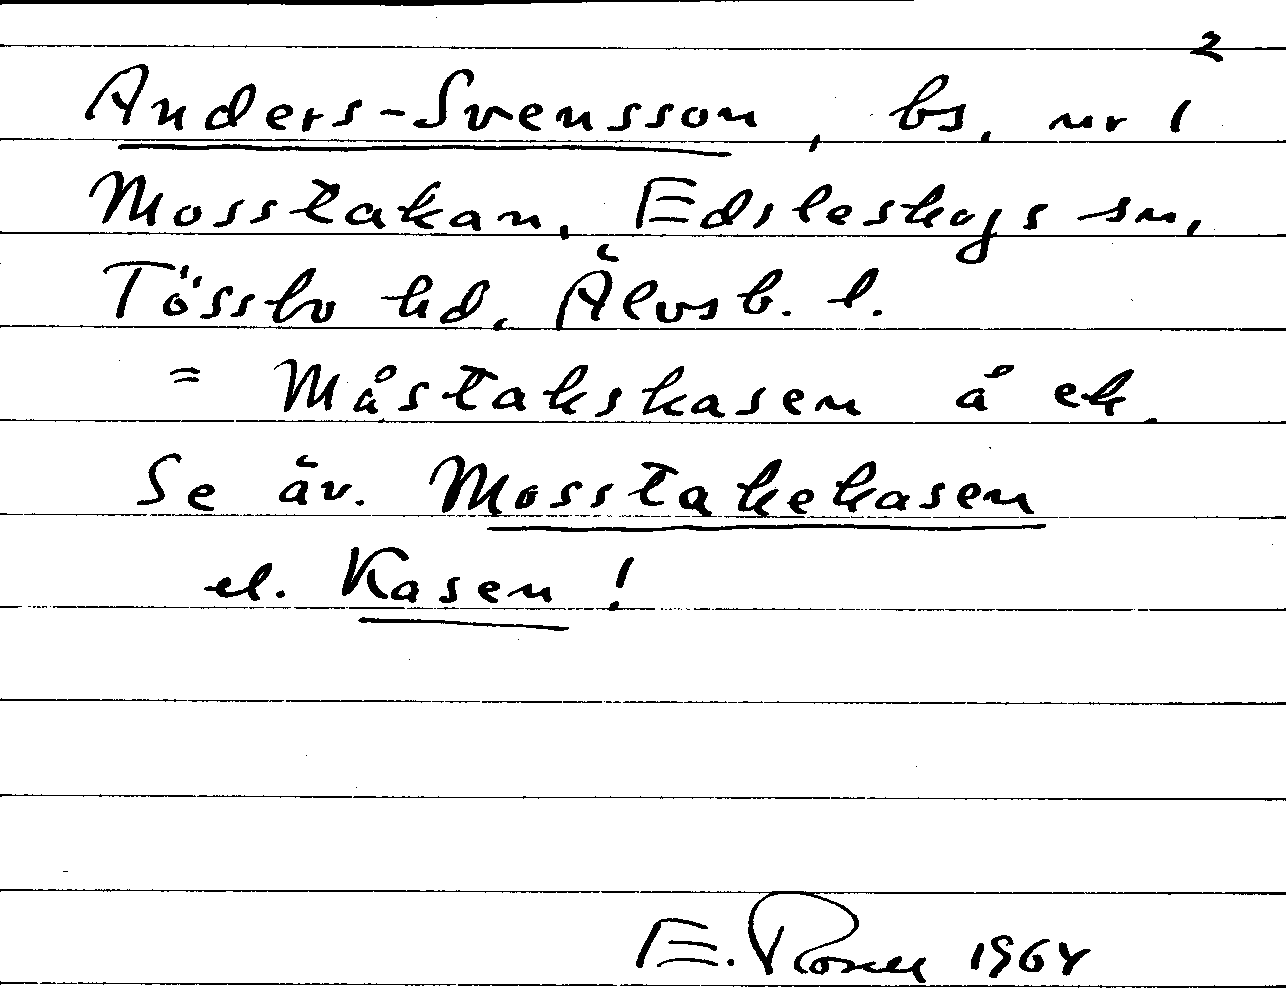 2
Anders-Svensson, bs. nr 1
Mosstakan, Edsleskogs sn,
Tössbo hd, Älvsb. l.
= Måstakskasen å ek.
Se äv. Mosstakekasen
el. Kasen!
E. Rosell 1964